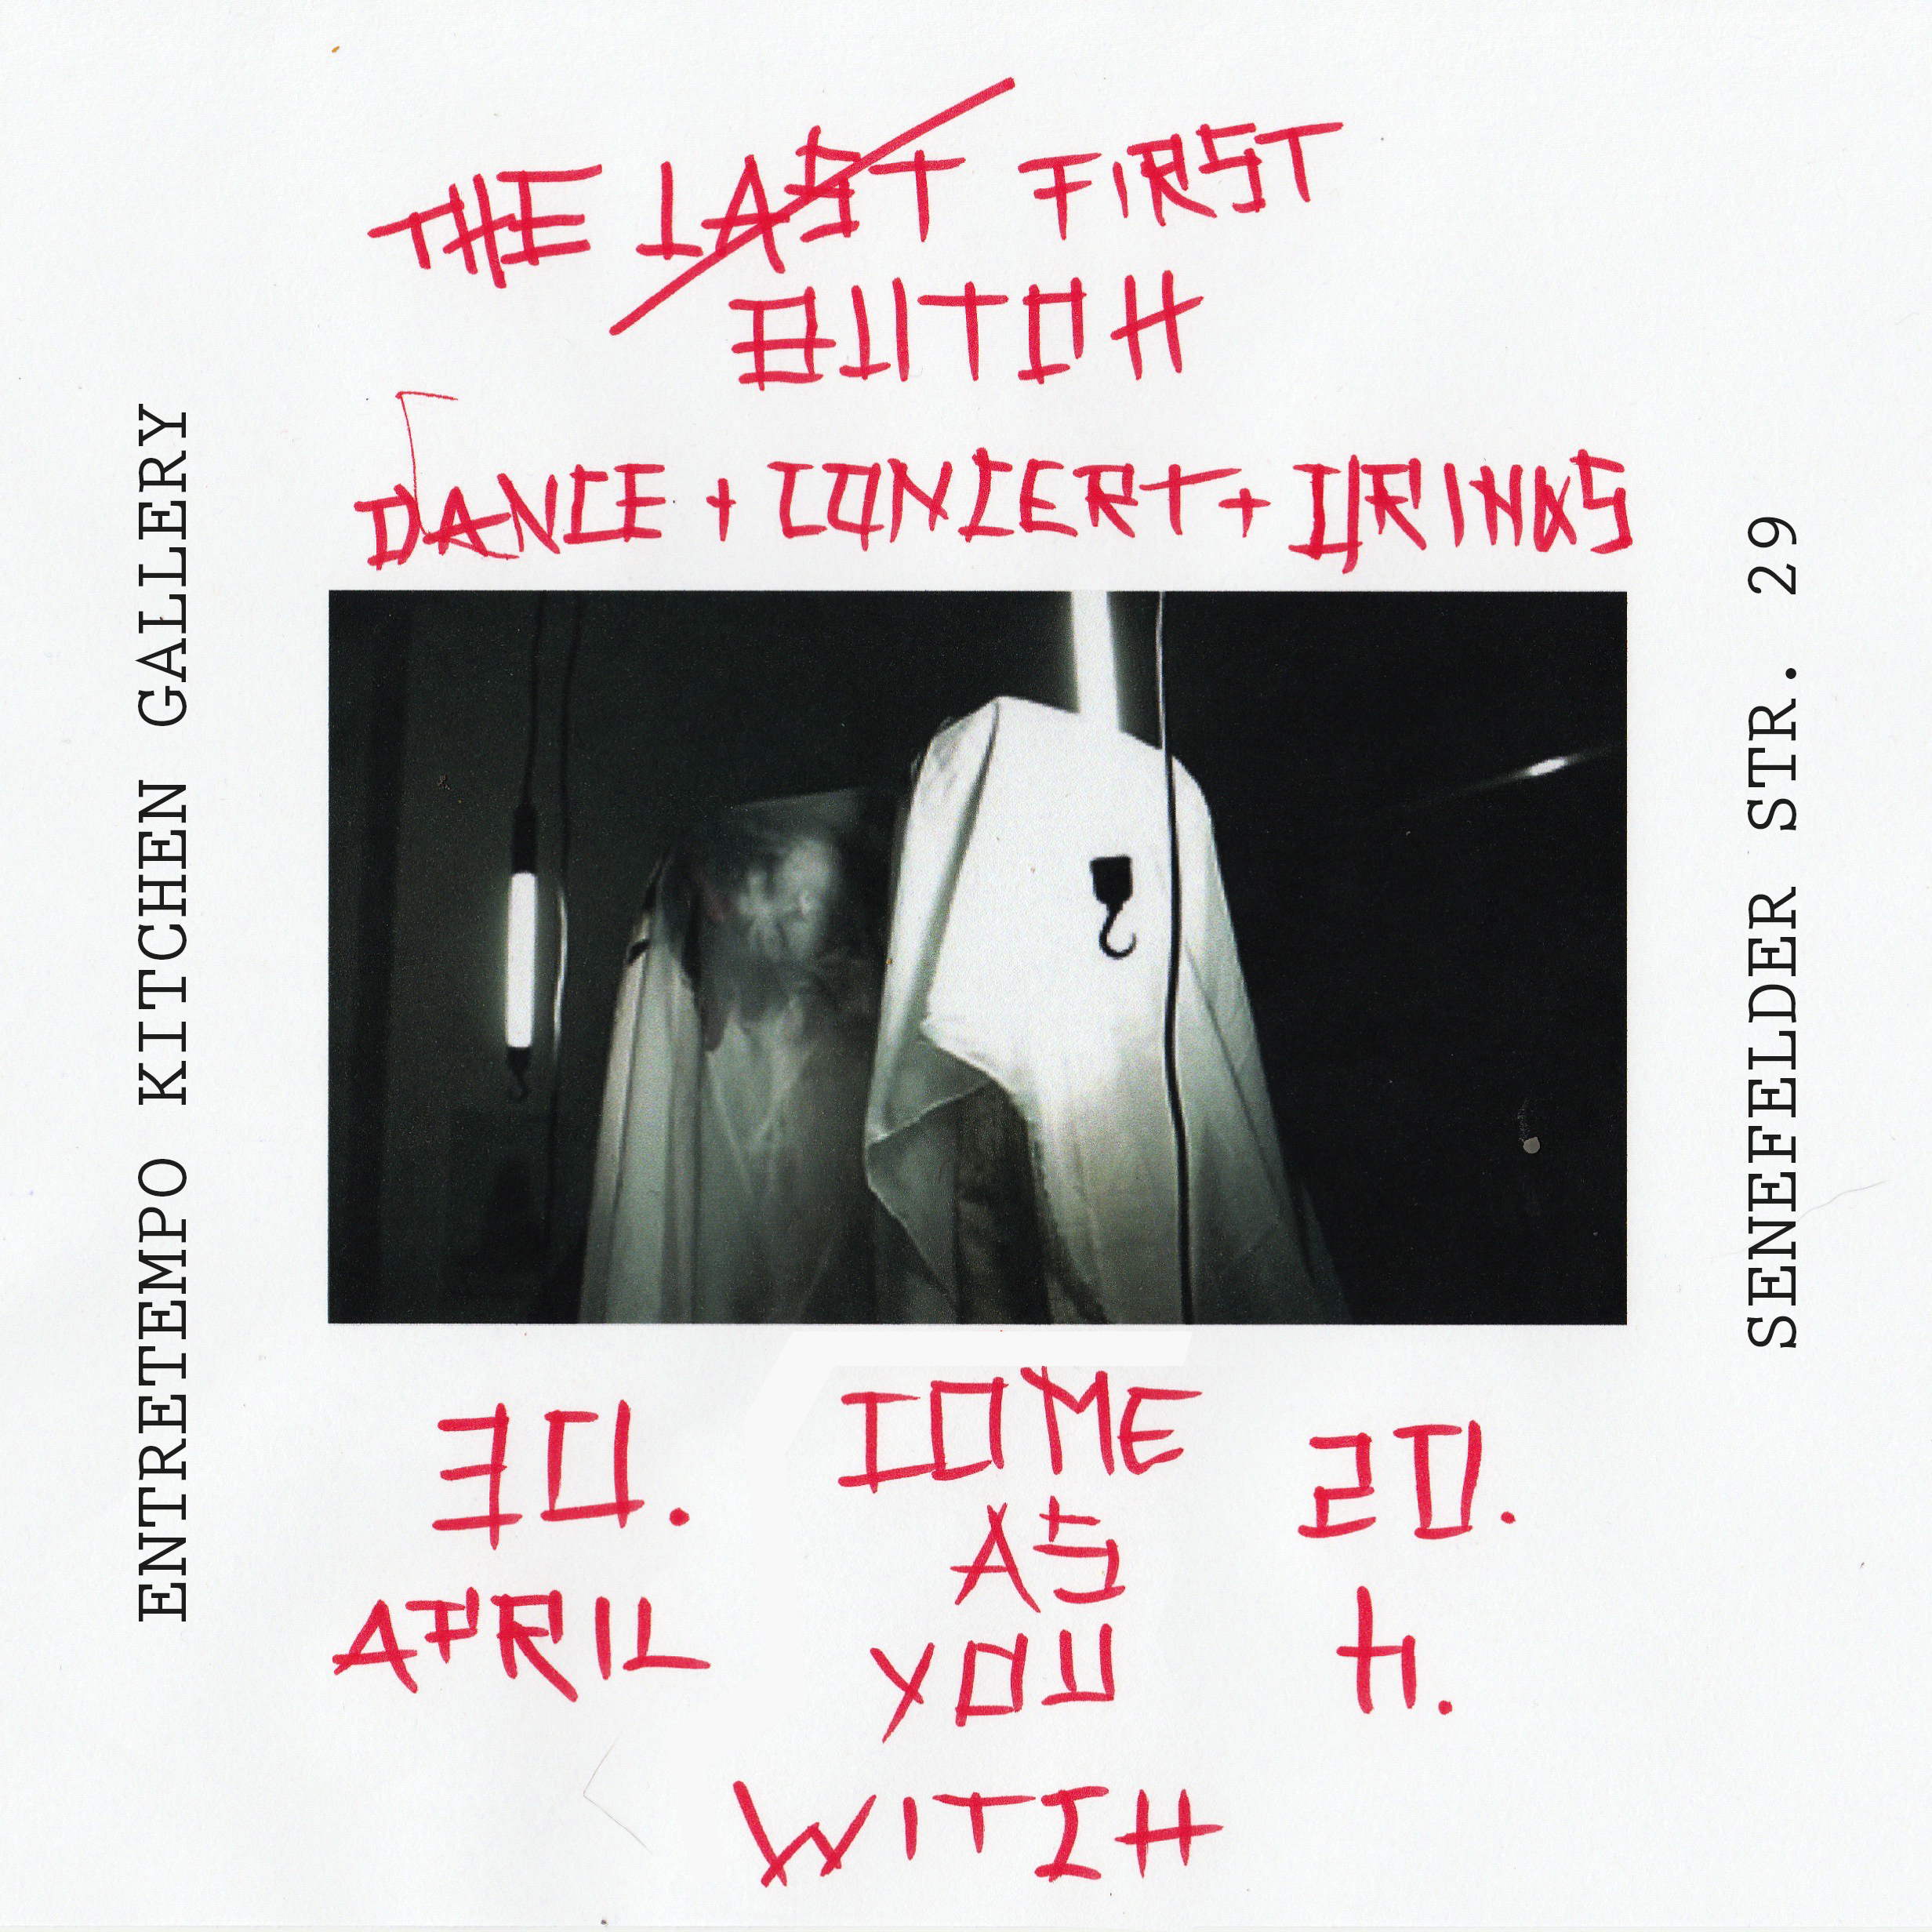 THE LAST FIRST
BUTOH
DANCE + CONCERT + DRINKS
ENTRETEMPO KITCHEN GALLERY
SENEFELDER STR. 29
30.
APRIL
COME
AS
YOU
WITCH
20.
H.